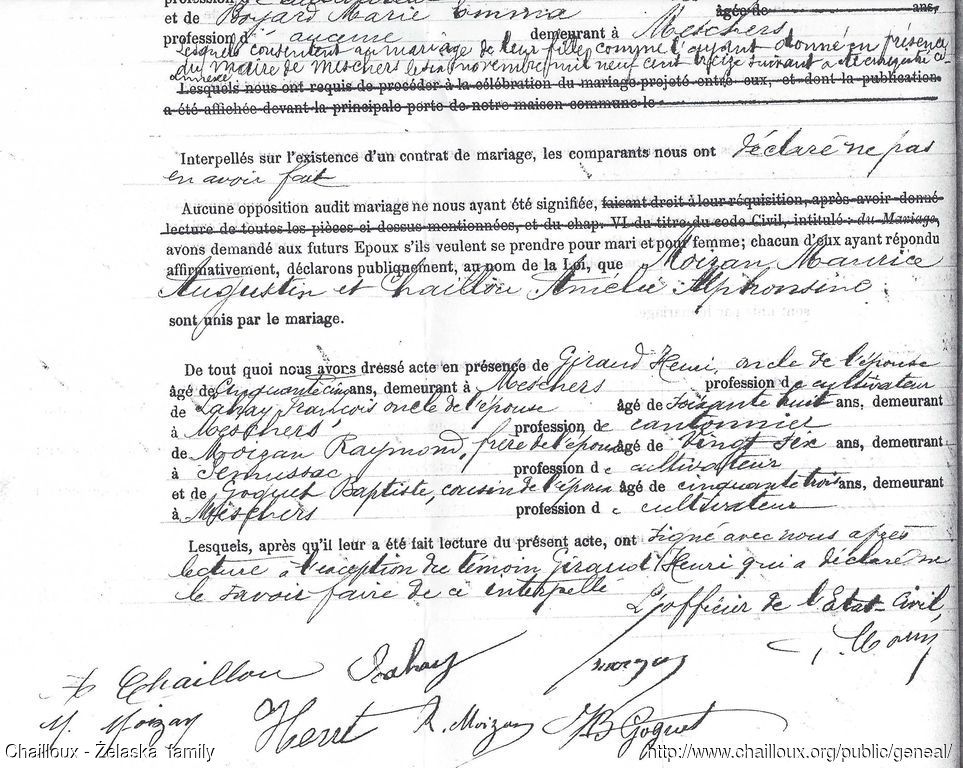 et de Boyard Marie Emma âgée de ans,
profession d' aucune demeurant à Meschers
Lesquels consentent au mariage de leur fille, comme l'ayant donné en présence
du Maire de Meschers le six novembre mil neuf cent treize suivant acte
annexé
Lesquels nous ont requis de procéder à la célébration du mariage projeté entre eux, et dont la publication
a été affichée devant la principale porte de notre maison commune le
Interpellés sur l'existence d'un contrat de mariage, les comparants nous ont déclaré ne pas
en avoir fait
Aucune opposition audit mariage ne nous ayant été signifiée, faisant droit à leur réquisition, après avoir donné
lecture de toutes les pièces ci-dessus mentionnées, et du chap. VI du titre du code Civil, intitulé : du Mariage,
avons demandé aux futurs Epoux s'ils veulent se prendre pour mari et pour femme; chacun d'eux ayant répondu
affirmativement, déclarons publiquement, au nom de la Loi, que Moizan Maurice
Augustin et Chaillou Amélie Alphonsine
sont unis par le mariage.
De tout quoi nous avons dressé acte en présence de Giraud Henri, oncle de l'épouse
âgé de Cinquante cinq ans, demeurant à Meschers profession de cultivateur
de Lahay François oncle de l'épouse âgé de soixante huit ans, demeurant
à Meschers profession de cantonnier
de Moizan Raymond, frère de l'époux âgé de vingt six ans, demeurant
à Semussac profession de cultivateur
et de Goguet Baptiste, cousin de l'époux âgé de cinquante trois ans, demeurant
à Meschers profession de cultivateur
Lesquels, après qu'il leur a été fait lecture du présent acte, ont signé avec nous après
lecture à l'exception du témoin Giraud Henri qui a déclaré ne
le savoir faire de ce interpellé
L'officier de l'Etat-Civil,
Chaillou Lahay
M. Moizan R. Moizan JB Goguet
Chailloux - Żelaska family http://www.chailloux.org/public/geneal/